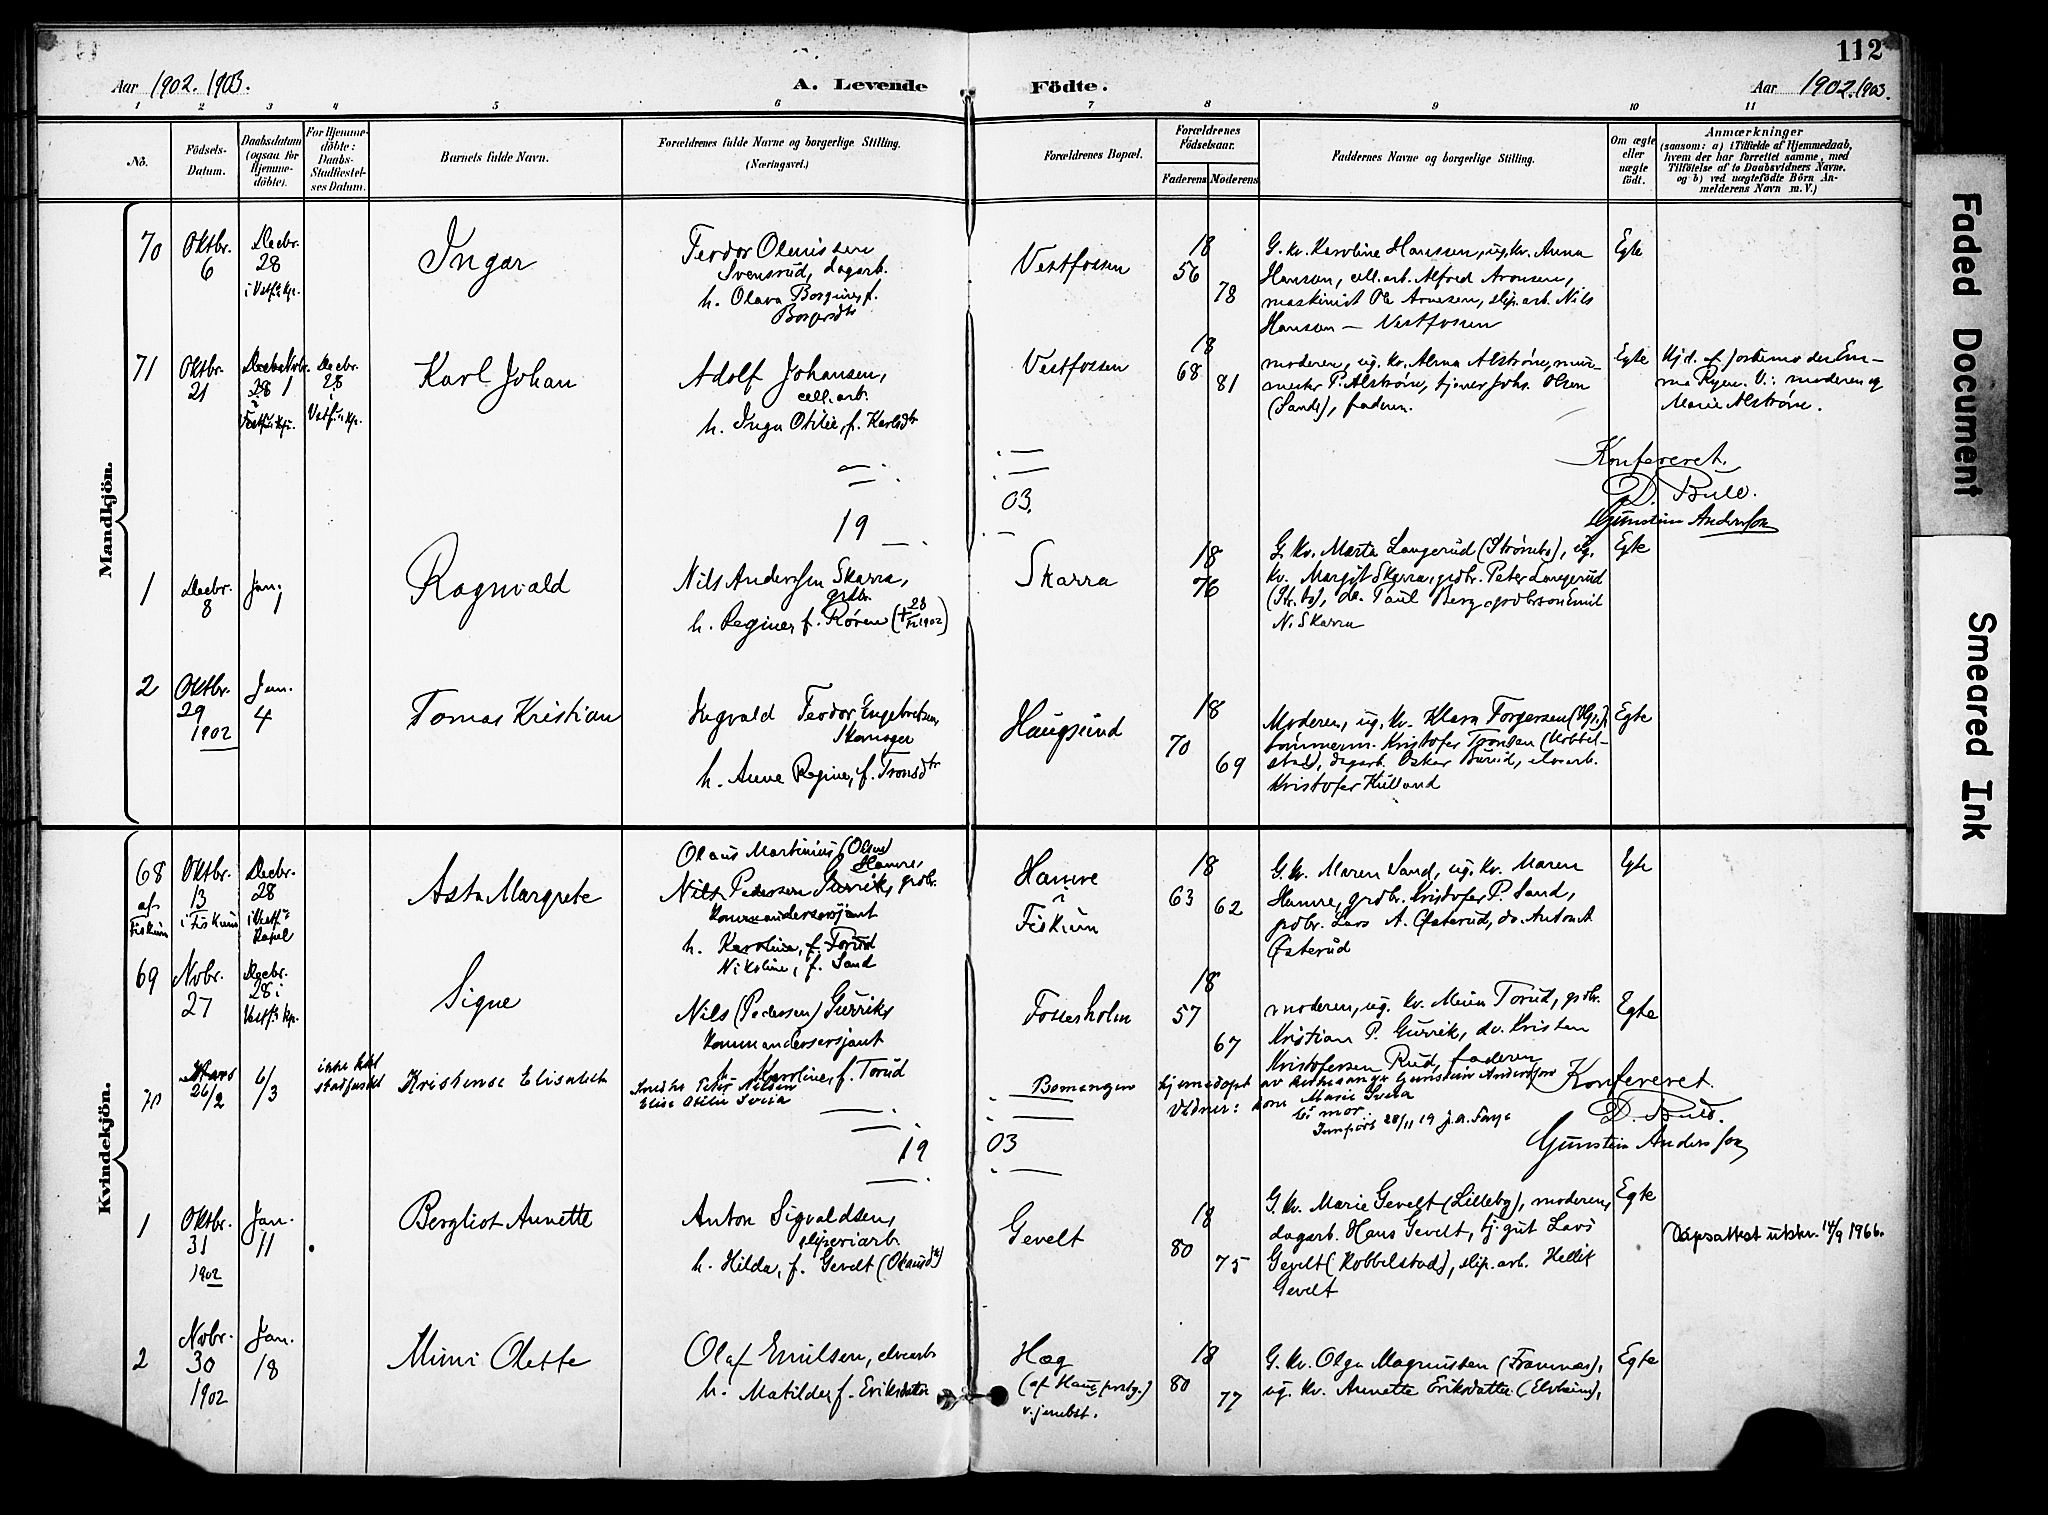 112
Aar 1902. 1903.
A. Levende Födte.
Aar 1902. 1903.
1 2 3 4 5 6 7 8 9 10 11
No.
Födsels-
Datum.
Daabsdatum
(ogsaa for
Hjemme-
döbte).
For Hjemme-
döbte:
Daabs-
Stadfæstel-
ses Datum.
Barnets fulde Navn.
Forældrenes fulde Navne og borgerlige Stilling.
(Næringsvei.)
Forældrenes Bopæl.
Forældrenes
Födselsaar.
Faderens Moderens
Faddernes Navne og borgerlige Stilling.
Om ægte
eller
uægte
födt.
Anmærkninger
(saasom: a) i Tilfælde af Hjemmedaab,
hvem der har forrettet samme, med
Tilföielse af to Daabsvidners Navne.
og b) ved uægtefödte Börn An-
melderens Navn m. V.)
Mandkjön.
70
Oktbr.
6
Decbr.
28
i Vestf. Kp.
Ingar
Teodor Olausen
Svensrud, dagarb.
h. Olava Borgine, f.
Borgersdtr
Vestfossen
18
56
78
G. kv. Karoline Hanssen, ug. kv. Anna
Hanson, cell. arb. Alfred Aronsen,
maskinist Ole Arnesen, slip. arb. Nils
Hanson — Vestfossen
Egte
71
Oktbr.
21
Novbr.
1
Decbr.
28
i
Vestf. Kp.
Karl Johan
Adolf Johansen,
cell. arb.
h. Inga Otilie, f. Karlsdtr
Vestfossen
18
68
81
moderen, ug. kv. Alma Alstrøm, mur-
mester P. Alstrøm, tjener Johs. Olsen
(Sande), faderen.
Egte
Hjd. af Jordemoder Em-
ma Ryen. V.: moderen og
Marie Alstrøm.
Konfereret.
D. Buld.
Gunstein Anderssen
19 03.
1
Decbr.
8
Jan.
1
Ragnvald
Nils Anderssen Skarra,
grdbr.
h. Regine, f. Røren († 28/12 1902)
Skarra
18
76
G. kv. Marta Langerud (Strømbo), ug.
kv. Margit Skarra, grdbr. Peter Langerud
(Str. bo), do. Paul Berg, grdbrsøn Emil
N. Skarra
Egte
2
Oktbr.
29
1902
Jan.
4
Tomas Kristian
Ingvald Teodor Engebretsen,
skomager
h. Anne Regine, f. Tronsdtr
Haugsund
18
70
69
Moderen, ug. kv. Klara Torgersen (Hgs.),
tømmerm. Kristofer Tronsen (Kobbel-
stad), dagarb. Oskar Burud, elvearb.
Kristofer Kulland
Egte
Kvindekjön.
68
af
Fiskum
Oktbr.
13
i Fiskum
Decbr.
28
i Vestf.
Kapel
Asta Margrete
Olaus Martinius (Olsen)
Hamre,
Nils Pedersen Gurrik, grdbr.
kommandersersjant
h. Karoline, f. Torud
Nikoline, f. Sand
Hamre
i
Fiskum
18
63
62
G. kv. Maren Sand, ug. kv. Maren
Hamre, grdbr. Kristofer P. Sand,
grdbr. Lars A. Østerud, do. Anton A
Østerud
Egte
69
Novbr.
27
Decbr.
28 i
Vestf. Kp.
Signe
Nils (Pedersen) Gurrik,
kommandersersjant
h. Karoline, f. Torud
Fossesholm
18
57
67
moderen, ug. kv. Maren Torud, grdbr.
Kristian P. Gurrik, do. Kristen
Kristofersen Rud, faderen
Egte
70
Mars
26/2
6/3
ikke
stadfæstet
Kristense Elisabeth
Smed Peter Nilsen
Elise Otilie Sveia
Bomangen
hjemmedøpt av Gunstein Anderssen
Vidner: kone Marie Sveia
mor.
Innført 28/11 19
Konfereret.
D. Buld.
Gunstein Anderssen
19 03
1
Oktbr.
31
1902
Jan.
11
Bergliot Annette
Anton Sigvaldsen,
sliperiarb.
h. Hilda, f. Gevelt (Olausdtr)
Gevelt
18
80
75
G. kv. Marie Gevelt (Lilleby), moderen,
dagarb. Hans Gevelt, tj. gut Lars
Gevelt (Kobbelstad), slip. arb. Hellik
Gevelt
Egte
Dåpsattest utskr. 14/9 1966.
2
Novbr.
30
1902
Jan.
18
Mimi Olette
Olaf Emilsen, elvearb.
h. Matilde, f. Eriksdatter
Hæg
(af Haug prstg.)
v. jernbst.
18
80
77
G. kv. Olga Magnussen (Framnæs),
ug. kv. Annette Eriksdatter (Elvheim),
Egte
Faded Document
Smeared Ink